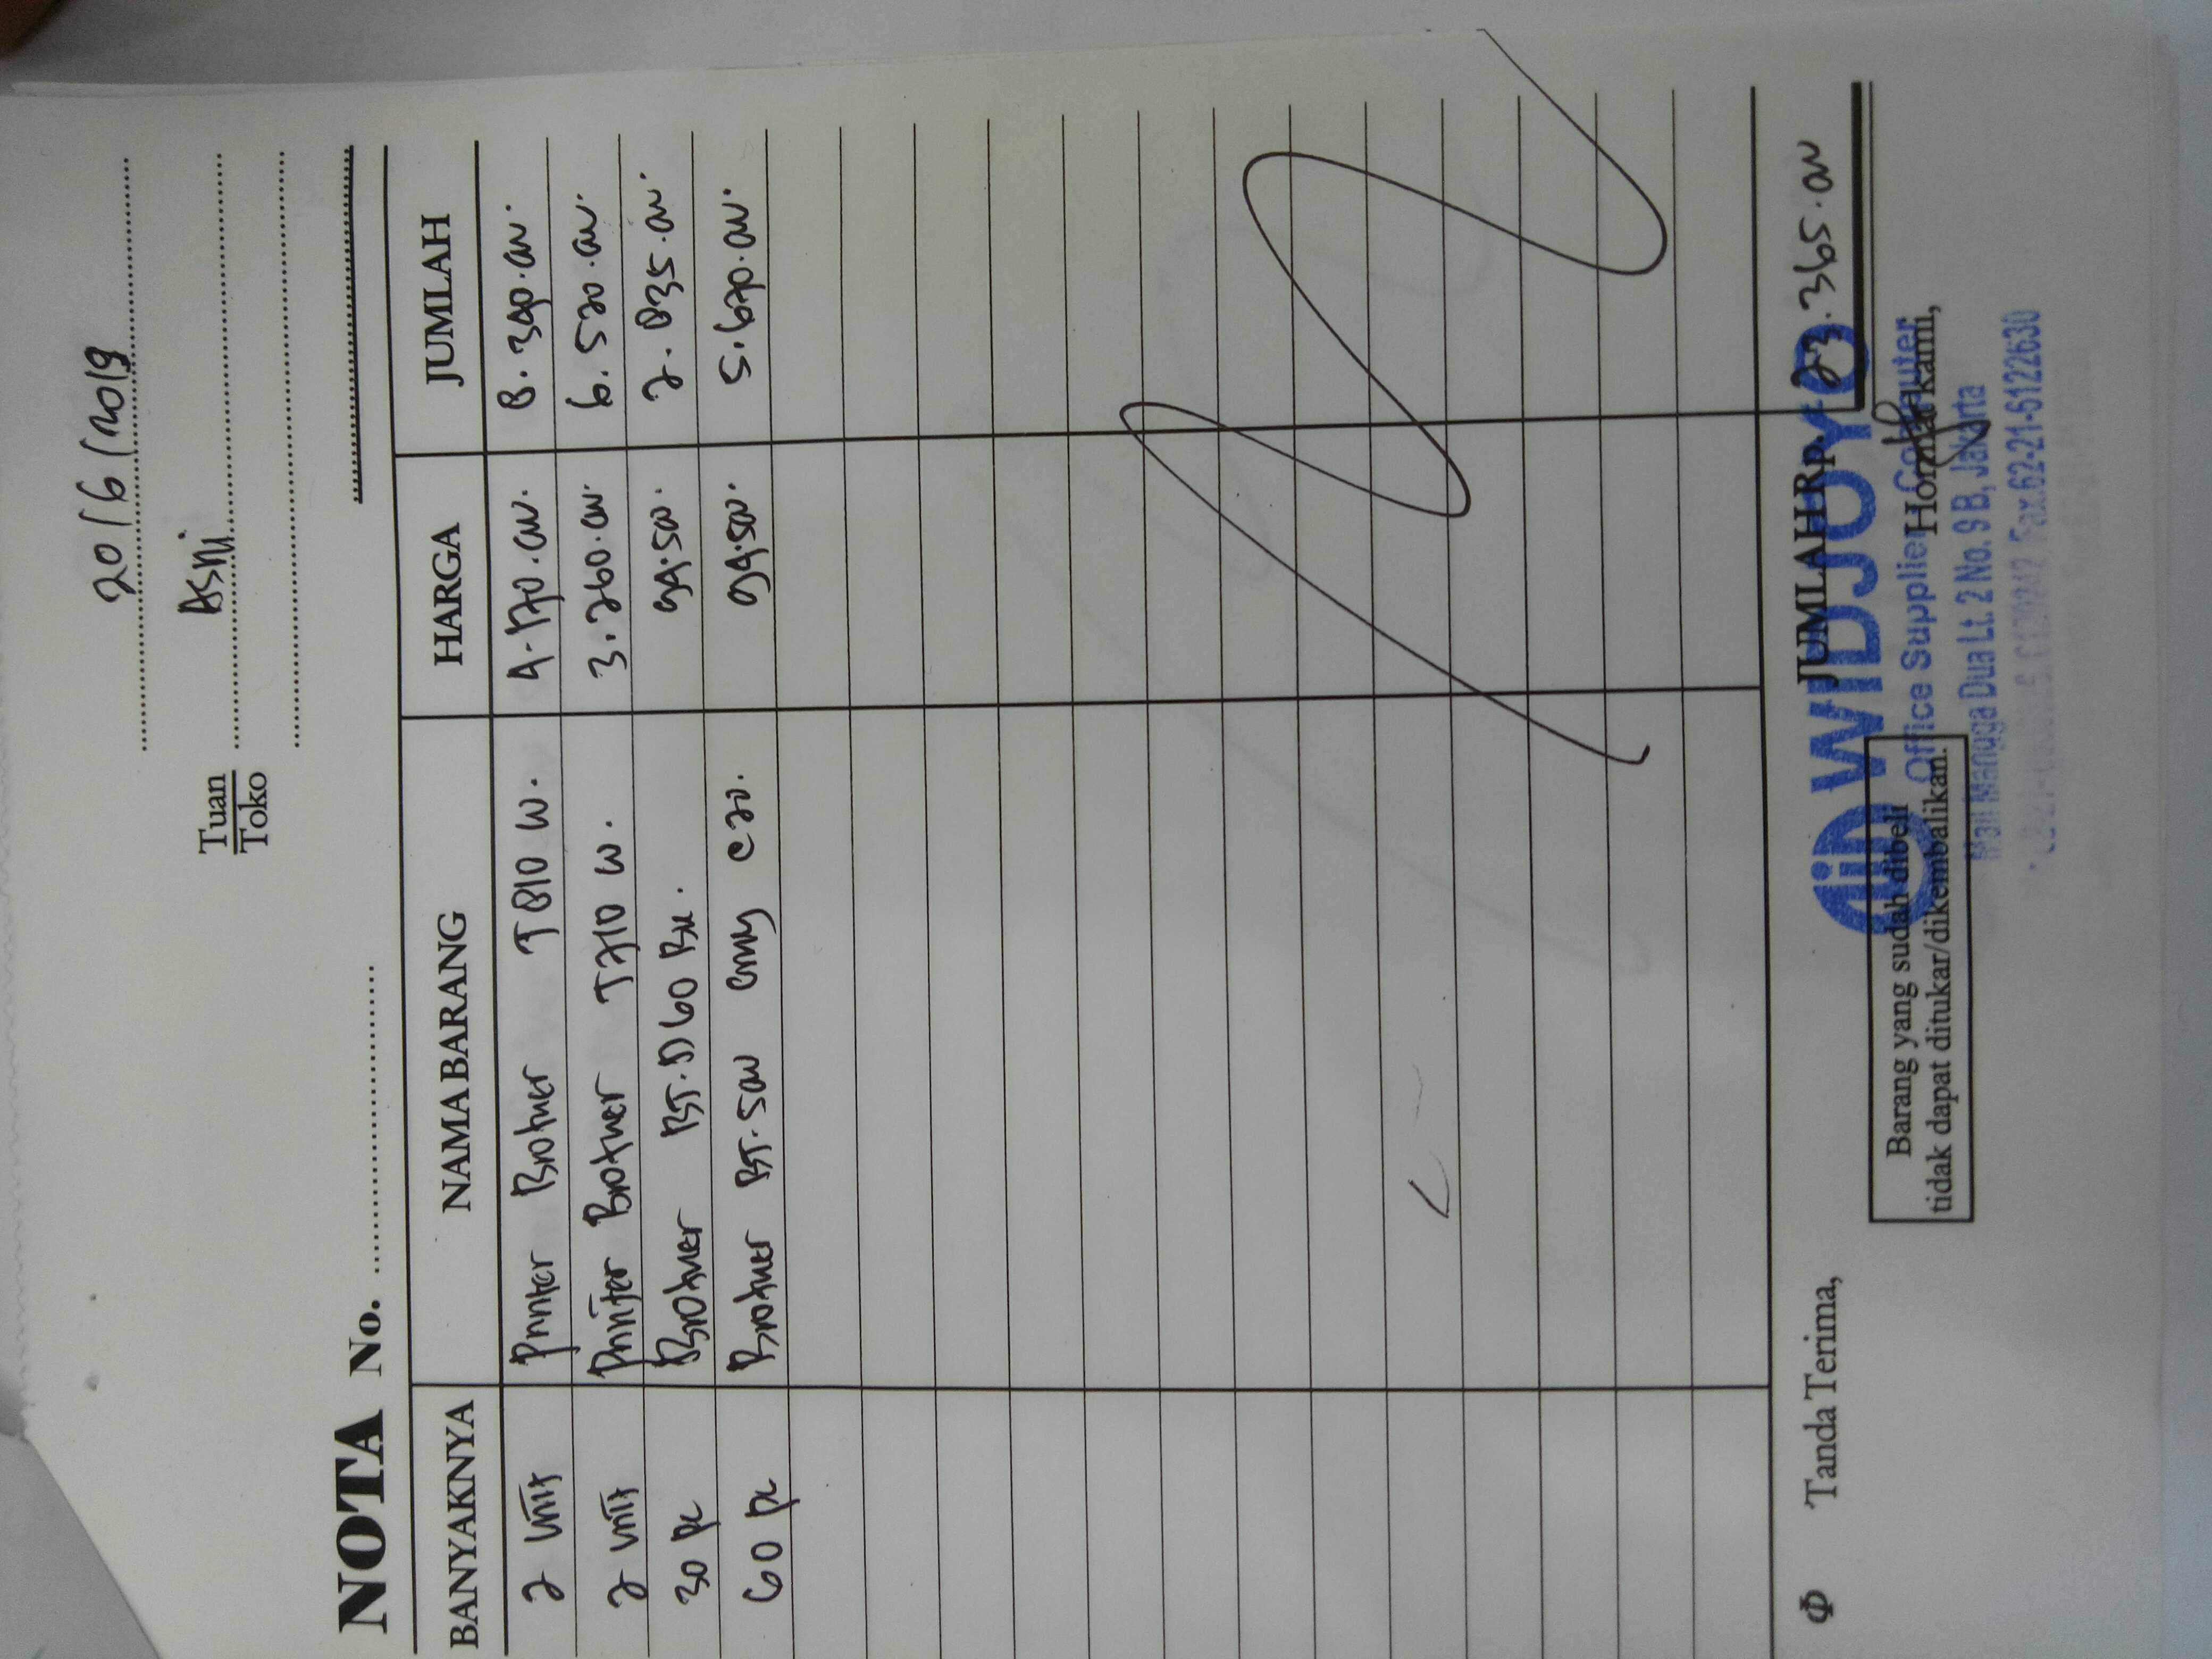 20/6/2019
Tuan
Toko
Asni
NOTA No.
BANYAKNYA NAMA BARANG HARGA JUMLAH
2 unit Printer Brother T 810 W. 4.170.000. 8.340.000.
2 unit Printer Brother T 710 W. 3.260.000. 6.520.000.
30 pc Brother BT.D 60 BK. 94.500. 2.835.000.
60 pc Brother BT.5000 CMY @20. 94.500. 5.670.000.
JUMLAH Rp. 23.365.000
Φ Tanda Terima,
Barang yang sudah dibeli
tidak dapat ditukar/dikembalikan.
Hormat kami,
WIDJOYO
Office Supplier Computer
Mall Mangga Dua Lt. 2 No. 9 B, Jakarta
Fax.62-21-6122630